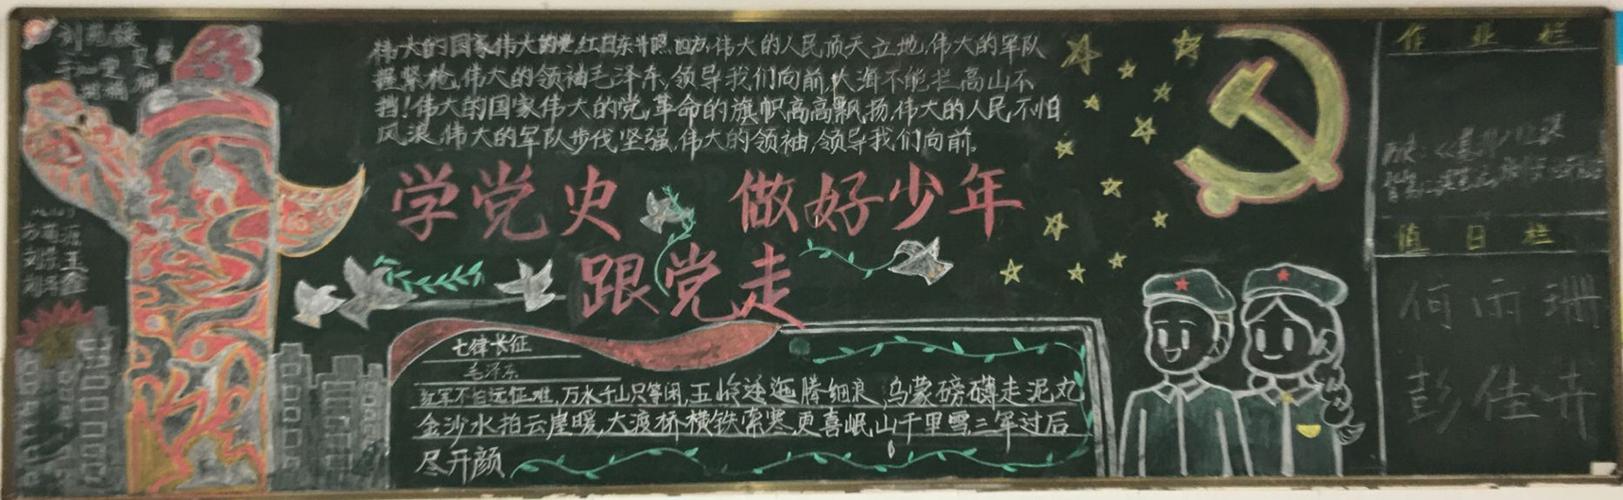 伟大的国家伟大的党,红日东升照四方,伟大的人民顶天立地,伟大的军队
握紧枪,伟大的领袖毛泽东,领导我们向前,大海不能拦高山不
挡!伟大的国家伟大的党,革命的旗帜高高飘扬,伟大的人民不怕
风浪,伟大的军队步伐坚强,伟大的领袖,领导我们向前。
学党史 做好少年
跟党走
七律长征
毛泽东
红军不怕远征难,万水千山只等闲,五岭逶迤腾细浪,乌蒙磅礴走泥丸
金沙水拍云崖暖,大渡桥横铁索寒,更喜岷山千里雪三军过后
尽开颜
作业栏
值日栏
何雨珊
彭佳卉